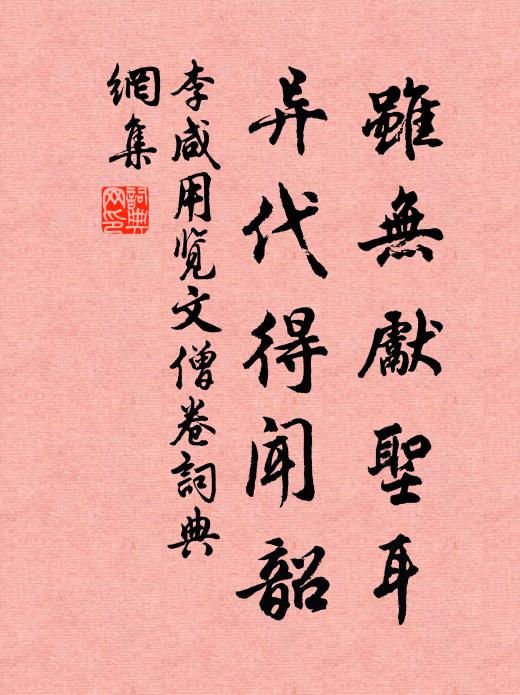 雖無獻聖耳
异代得聞韶
李咸用览文僧卷詞典
網集
詞典
网印